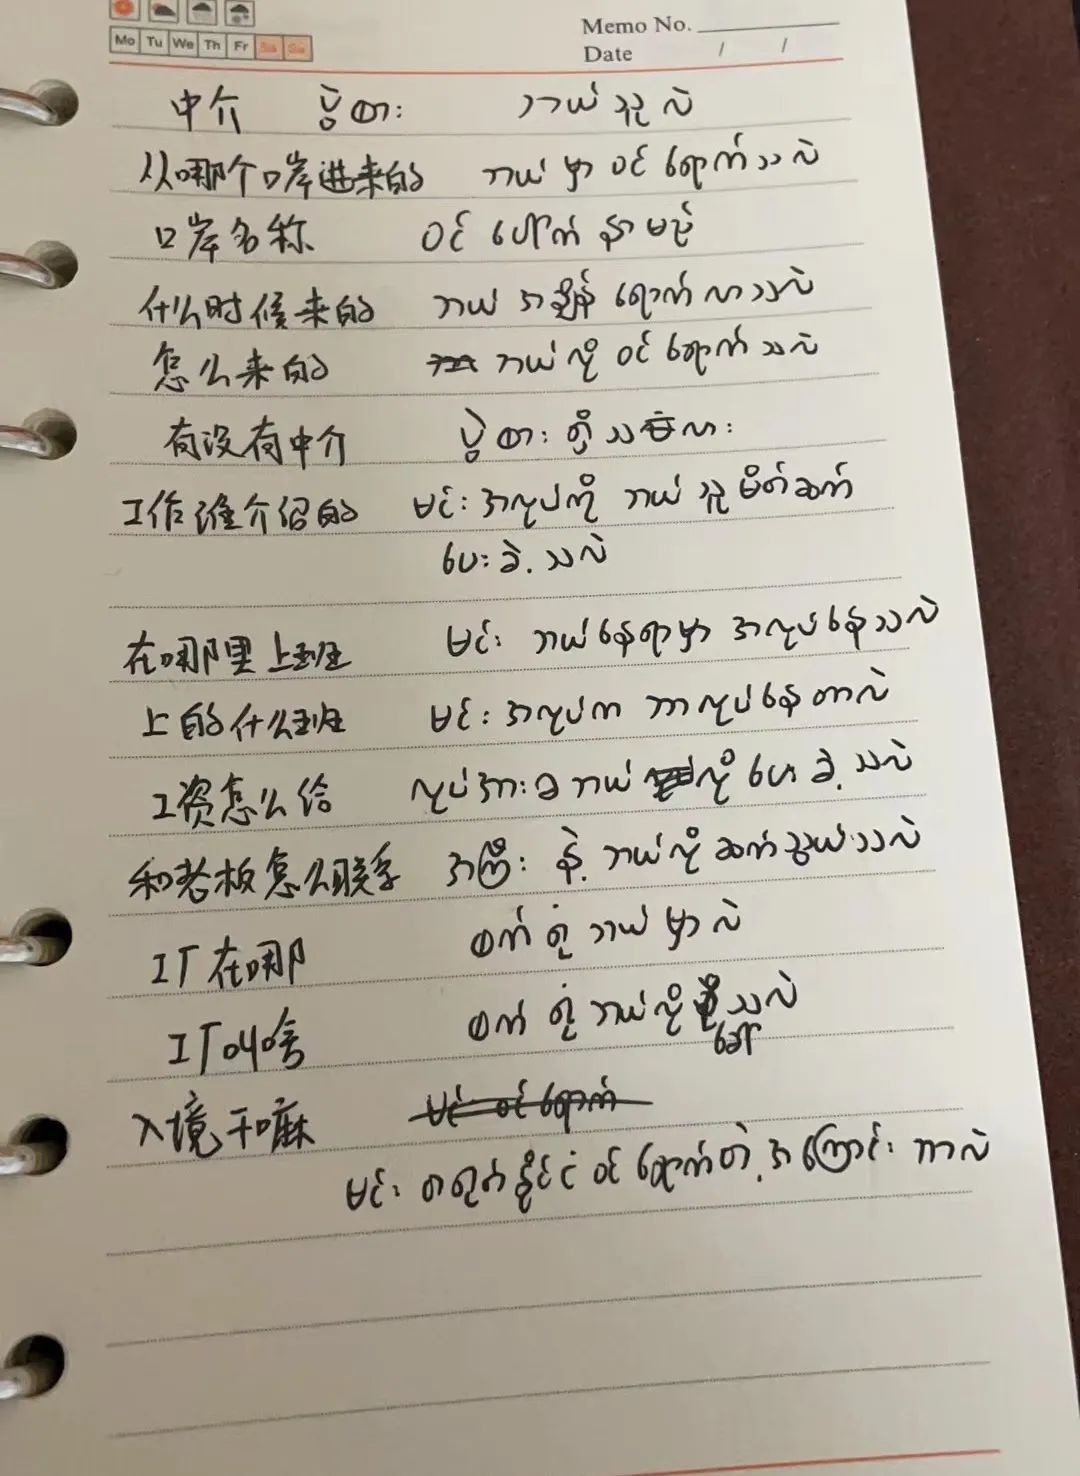 Memo No.
Mo Tu We Th Fr Sa Su
Date / /
中介 ပွဲစား ဘယ်သူလဲ
从哪个口岸进来的 ဘယ်မှာ ဝင်ရောက်သလဲ
口岸名称 ဝင်ပေါက် နာမည်
什么时候来的 ဘယ်အချိန် ရောက်လာသလဲ
怎么来的 ဘယ်လို ဝင်ရောက်သလဲ
有没有中介 ပွဲစား ရှိသလား
工作谁介绍的 မင်း အလုပ်ကို ဘယ်သူ မိတ်ဆက်
ပေးခဲ့သလဲ
在哪里上班 မင်း ဘယ်နေရာမှာ အလုပ်နေသလဲ
上的什么班 မင်း အလုပ်က ဘာလုပ်နေတာလဲ
工资怎么给 လုပ်အားခ ဘယ်လို ပေးခဲ့သလဲ
和老板怎么联系 အကြီး နဲ့ ဘယ်လို ဆက်သွယ်သလဲ
工厂在哪 စက်ရုံ ဘယ်မှာလဲ
工厂叫啥 စက်ရုံ ဘယ်လို ခေါ်သလဲ
入境干嘛 မင်း ဝင်ရောက်
မင်း တရုတ်နိုင်ငံ ဝင်ရောက်တဲ့ အကြောင်း ဘာလဲ